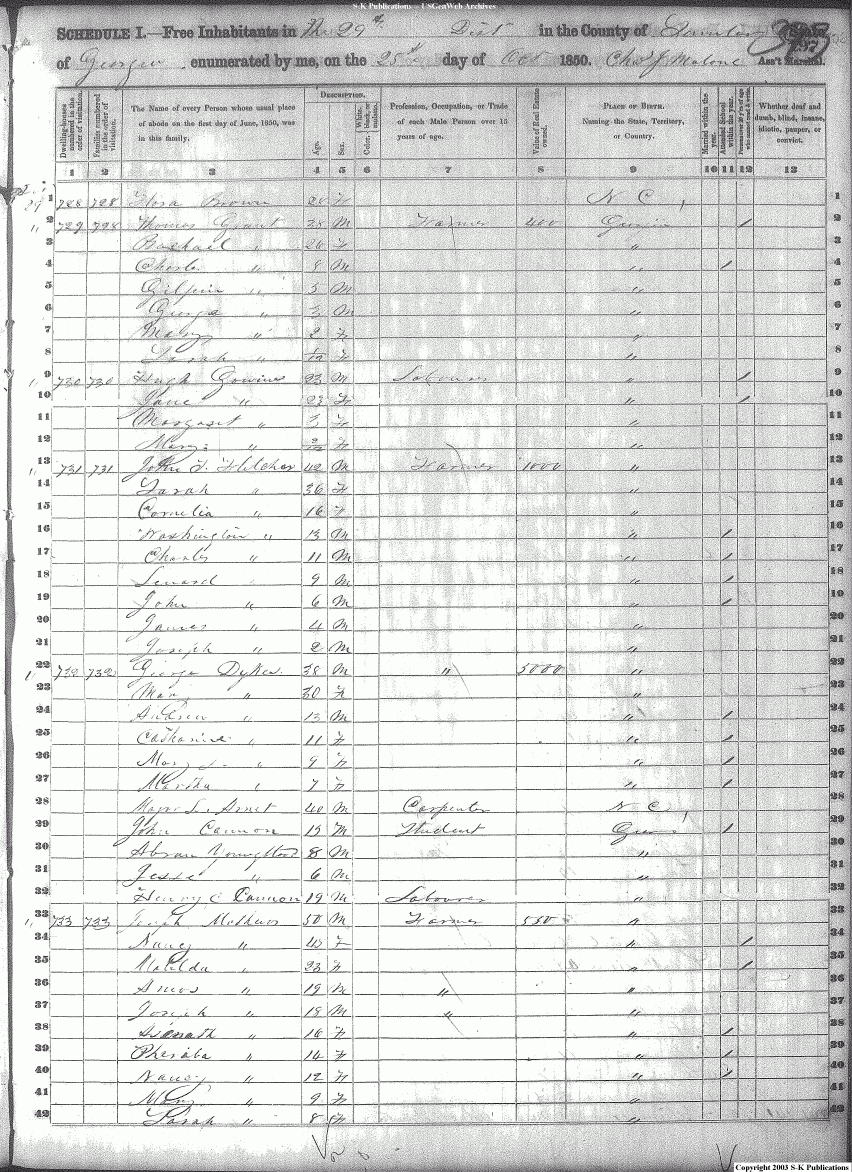 S-K Publications — USGenWeb Archives
SCHEDULE I.—Free Inhabitants in The 29th Dist in the County of State
of Georgia enumerated by me, on the 25th day of Oct 1850. Chas J Malone Ass't Marshal.
Dwelling-houses numbered in the order of visitation.
Families numbered in the order of visitation.
The Name of every Person whose usual place of abode on the first day of June, 1850, was in this family.
DESCRIPTION.
Age.
Sex.
White, black, or mulatto.
Color,
Profession, Occupation, or Trade of each Male Person over 15 years of age.
Value of Real Estate owned.
PLACE OF BIRTH. Naming the State, Territory, or Country.
Married within the year.
Attended School within the year.
Persons over 20 y'rs of age who cannot read & write.
Whether deaf and dumb, blind, insane, idiotic, pauper, or convict.
1 2 3 4 5 6 7 8 9 10 11 12 13
1 728 728 Flora Brown F N C 1
2 729 Thomas Grant 38 M Farmer 400 Georgia / 2
3 Rachael " 26 F " 3
4 Charles " 8 M " / 4
5 " 5 M " 5
6 George " 3 M " 6
7 Mary " 2 F " 7
8 Sarah " F " 8
9 730 730 Hugh 23 M Labourer " / 9
10 Jane " 23 F " / 10
11 Margaret " 3 F " 11
12 Mary " F " 12
13 731 731 John F. Fletcher 42 M Farmer 1000 " 13
14 Sarah " 36 F " 14
15 Cornelia " 16 F " 15
16 Washington " 13 M " / 16
17 Charles " 11 M " / 17
18 Lenard " 9 M " / 18
19 John " 6 M " / 19
20 James " 4 M " 20
21 Joseph " 2 M " 21
22 732 732 George Dykes 38 M " 5000 " 22
23 Mary " 30 F " 23
24 Andrew " 13 M " / 24
25 Catharine " 11 F " / 25
26 Mary " 9 F " / 26
27 Martha " 7 F " / 27
28 40 M Carpenter N C 28
29 John Cannon 19 M Student / 29
30 Abram Youngblood 8 M " 30
31 Jesse " 6 M " 31
32 Henry C Cannon 19 M Labourer " 32
33 733 733 Joseph Mathews 50 M Farmer 550 " 33
34 Nancy " F " / 34
35 Matilda " 23 F " / 35
36 Amos " 19 M " " 36
37 Joseph " 18 M " " 37
38 " 16 F " / 38
39 Pheraba " 14 F " / 39
40 Nancy " 12 F " / 40
41 Mary " 9 F " 41
42 Sarah " 8 F " 42
Copyright 2003 S-K Publications